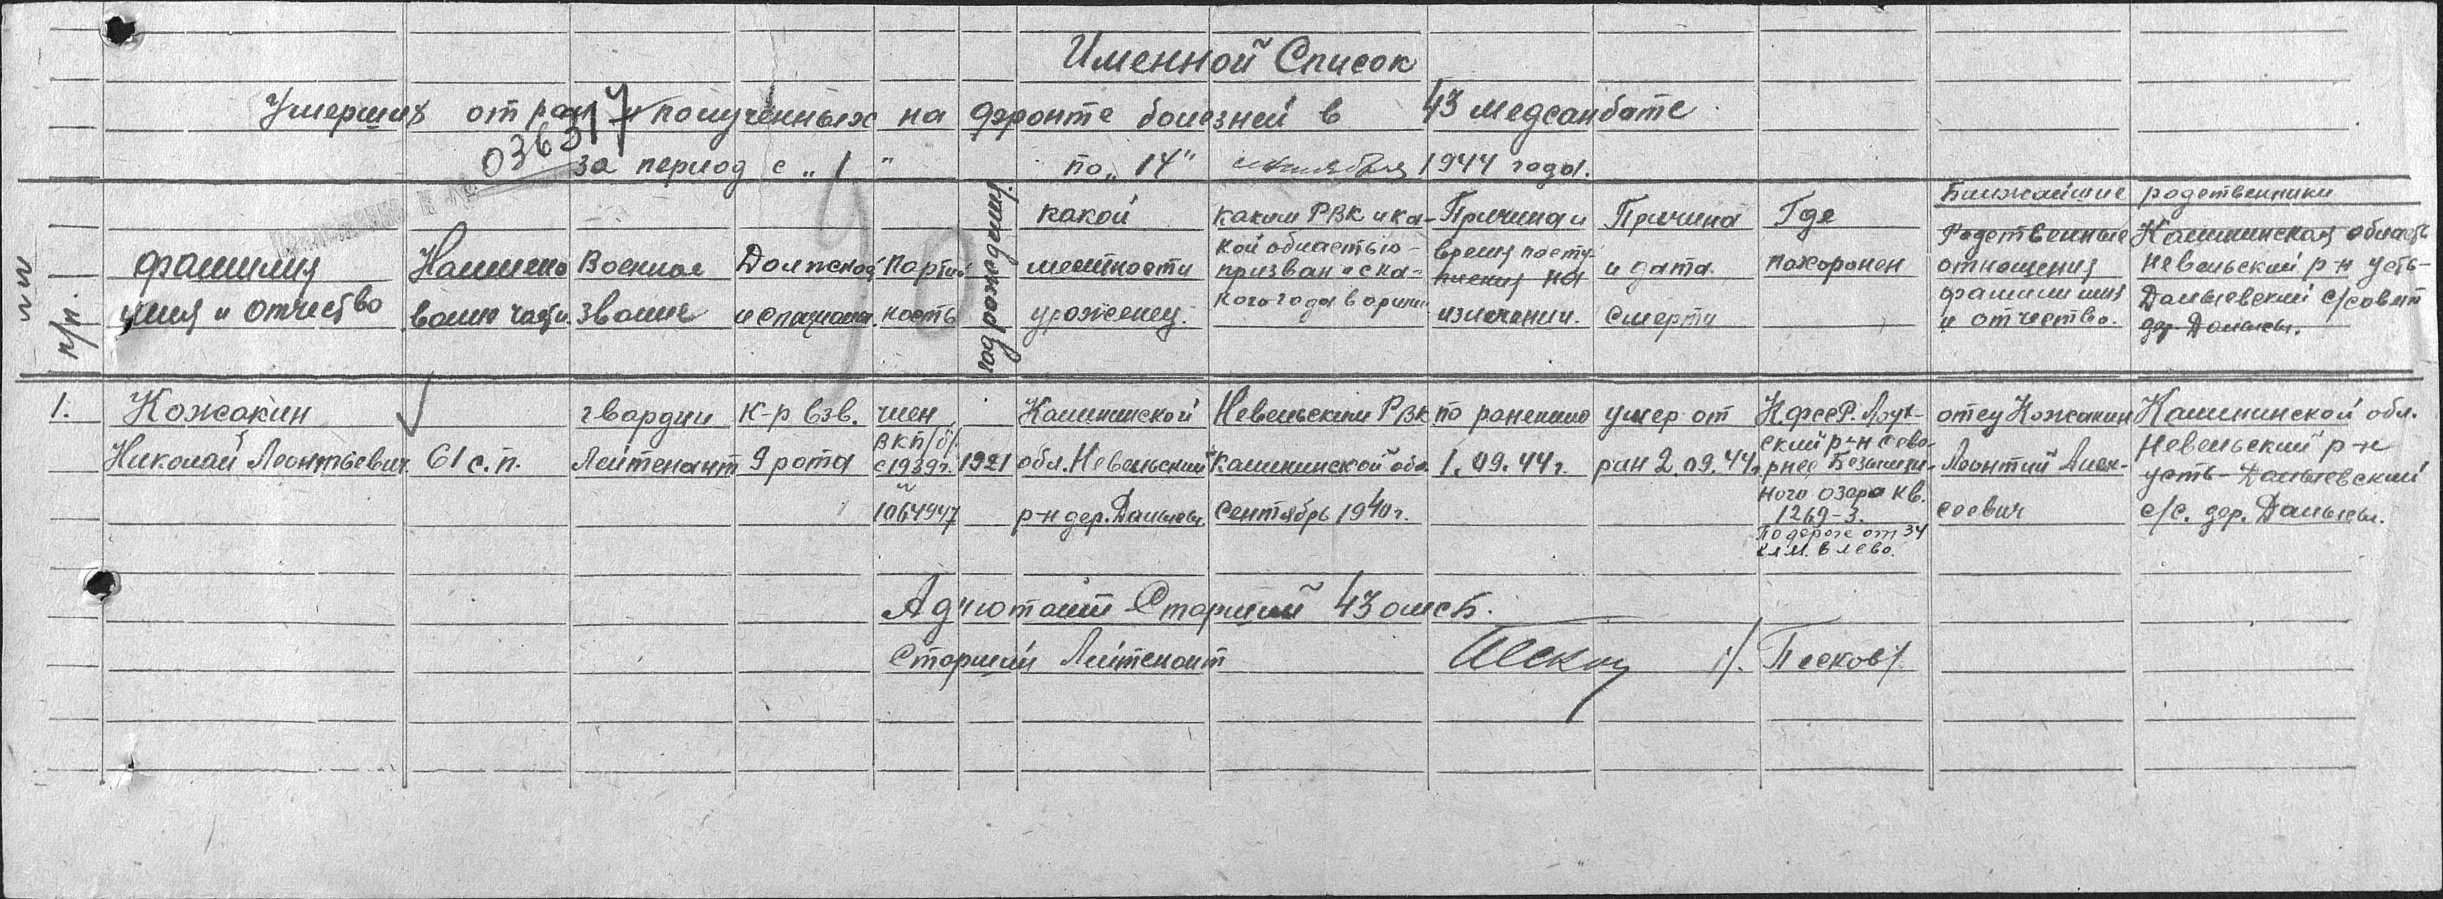 Именной Список
Умерших от ран и полученных на фронте болезней в 43 медсанбате
036317
за период с „1" по „14" сентября 1944 года.
№№ п/п.
Фамилия имя и отчество
Наимено воин части
Военное звание
Должност и специальн.
Партий ность
Год рождения
какой местности уроженец.
каким РВК и ка-
кой областью
призван и ска-
кого года в армии
Причина и
время посту-
пления на
излечении.
Причина и дата смерти
Где похоронен
Ближайшие родственники
Родственные
отношения
фамилия имя
и отчество.
Калининская область
Невельский р-н усть-
Долысевский с/совет
дер. Долысы.
1. Кожакин Николай Леонтьевич
61 с.п.
гвардии Лейтенант
К-р взв. 9 рота
член
ВКП/б/
с 1939г.
№
1064947
1921
Калининской
обл. Невельский
р-н дер. Долысы.
Невельским РВК
Калининской обл.
Сентябрь 1940г.
по ранению
1.09.44г.
умер от
ран 2.09.44г.
К.ФССР. Лоух-
ский р-н севе-
рнее Безымян-
ного озера кв.
1269-3.
По дороге от 34
клм. влево.
отец Кожакин
Леонтий Алек-
сеевич
Калининской обл.
Невельский р-н
усть-Долысевский
с/с. дер. Долысы.
Адьютант Старший 43 омсб.
Старший Лейтенант /Песков/.